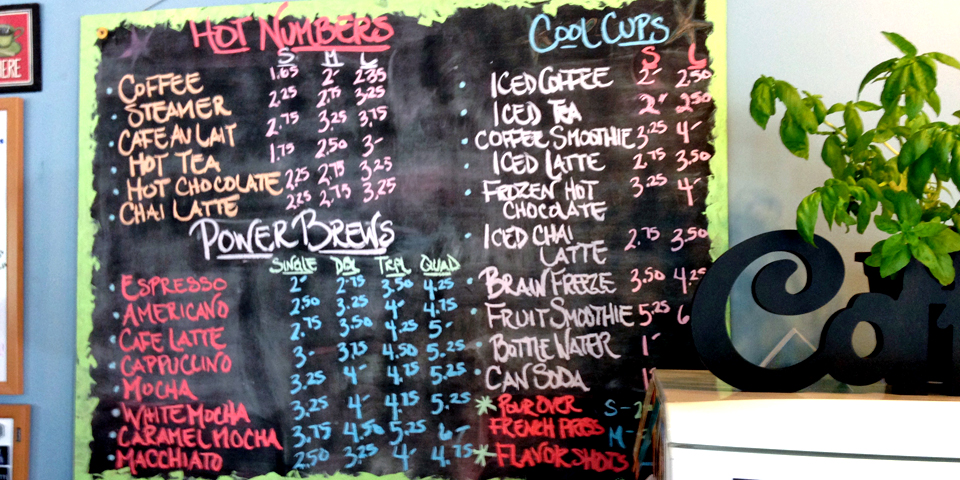 HERE
HOT NUMBERS
S M L
COFFEE 1.65 2- 2.35
STEAMER 2.25 2.75 3.25
CAFE AU LAIT 2.75 3.25 3.75
HOT TEA 1.75 2.50 3-
HOT CHOCOLATE 2.25 2.75 3.25
CHAI LATTE 2.25 2.75 3.25
POWER BREWS
SINGLE DBL TRPL QUAD
ESPRESSO 2- 2.75 3.50 4.25
AMERICANO 2.50 3.25 4- 4.75
CAFE LATTE 2.75 3.50 4.25 5-
CAPPUCCINO 3- 3.75 4.50 5.25
MOCHA 3.25 4- 4.75 5.25
WHITE MOCHA 3.25 4- 4.75 5.25
CARAMEL MOCHA 3.75 4.50 5.25 6-
MACCHIATO 2.50 3.25 4- 4.75
COOL CUPS
S L
ICED COFFEE 2- 2.50
ICED TEA 2- 2.50
COFFEE SMOOTHIE 3.25 4-
ICED LATTE 2.75 3.50
FROZEN HOT 3.25 4-
CHOCOLATE
ICED CHAI
LATTE 2.75 3.50
BRAIN FREEZE 3.50 4.25
FRUIT SMOOTHIE 5.25 6
BOTTLE WATER 1-
CAN SODA 1
* POUR OVER S-2
FRENCH PRESS M-
* FLAVOR SHOTS